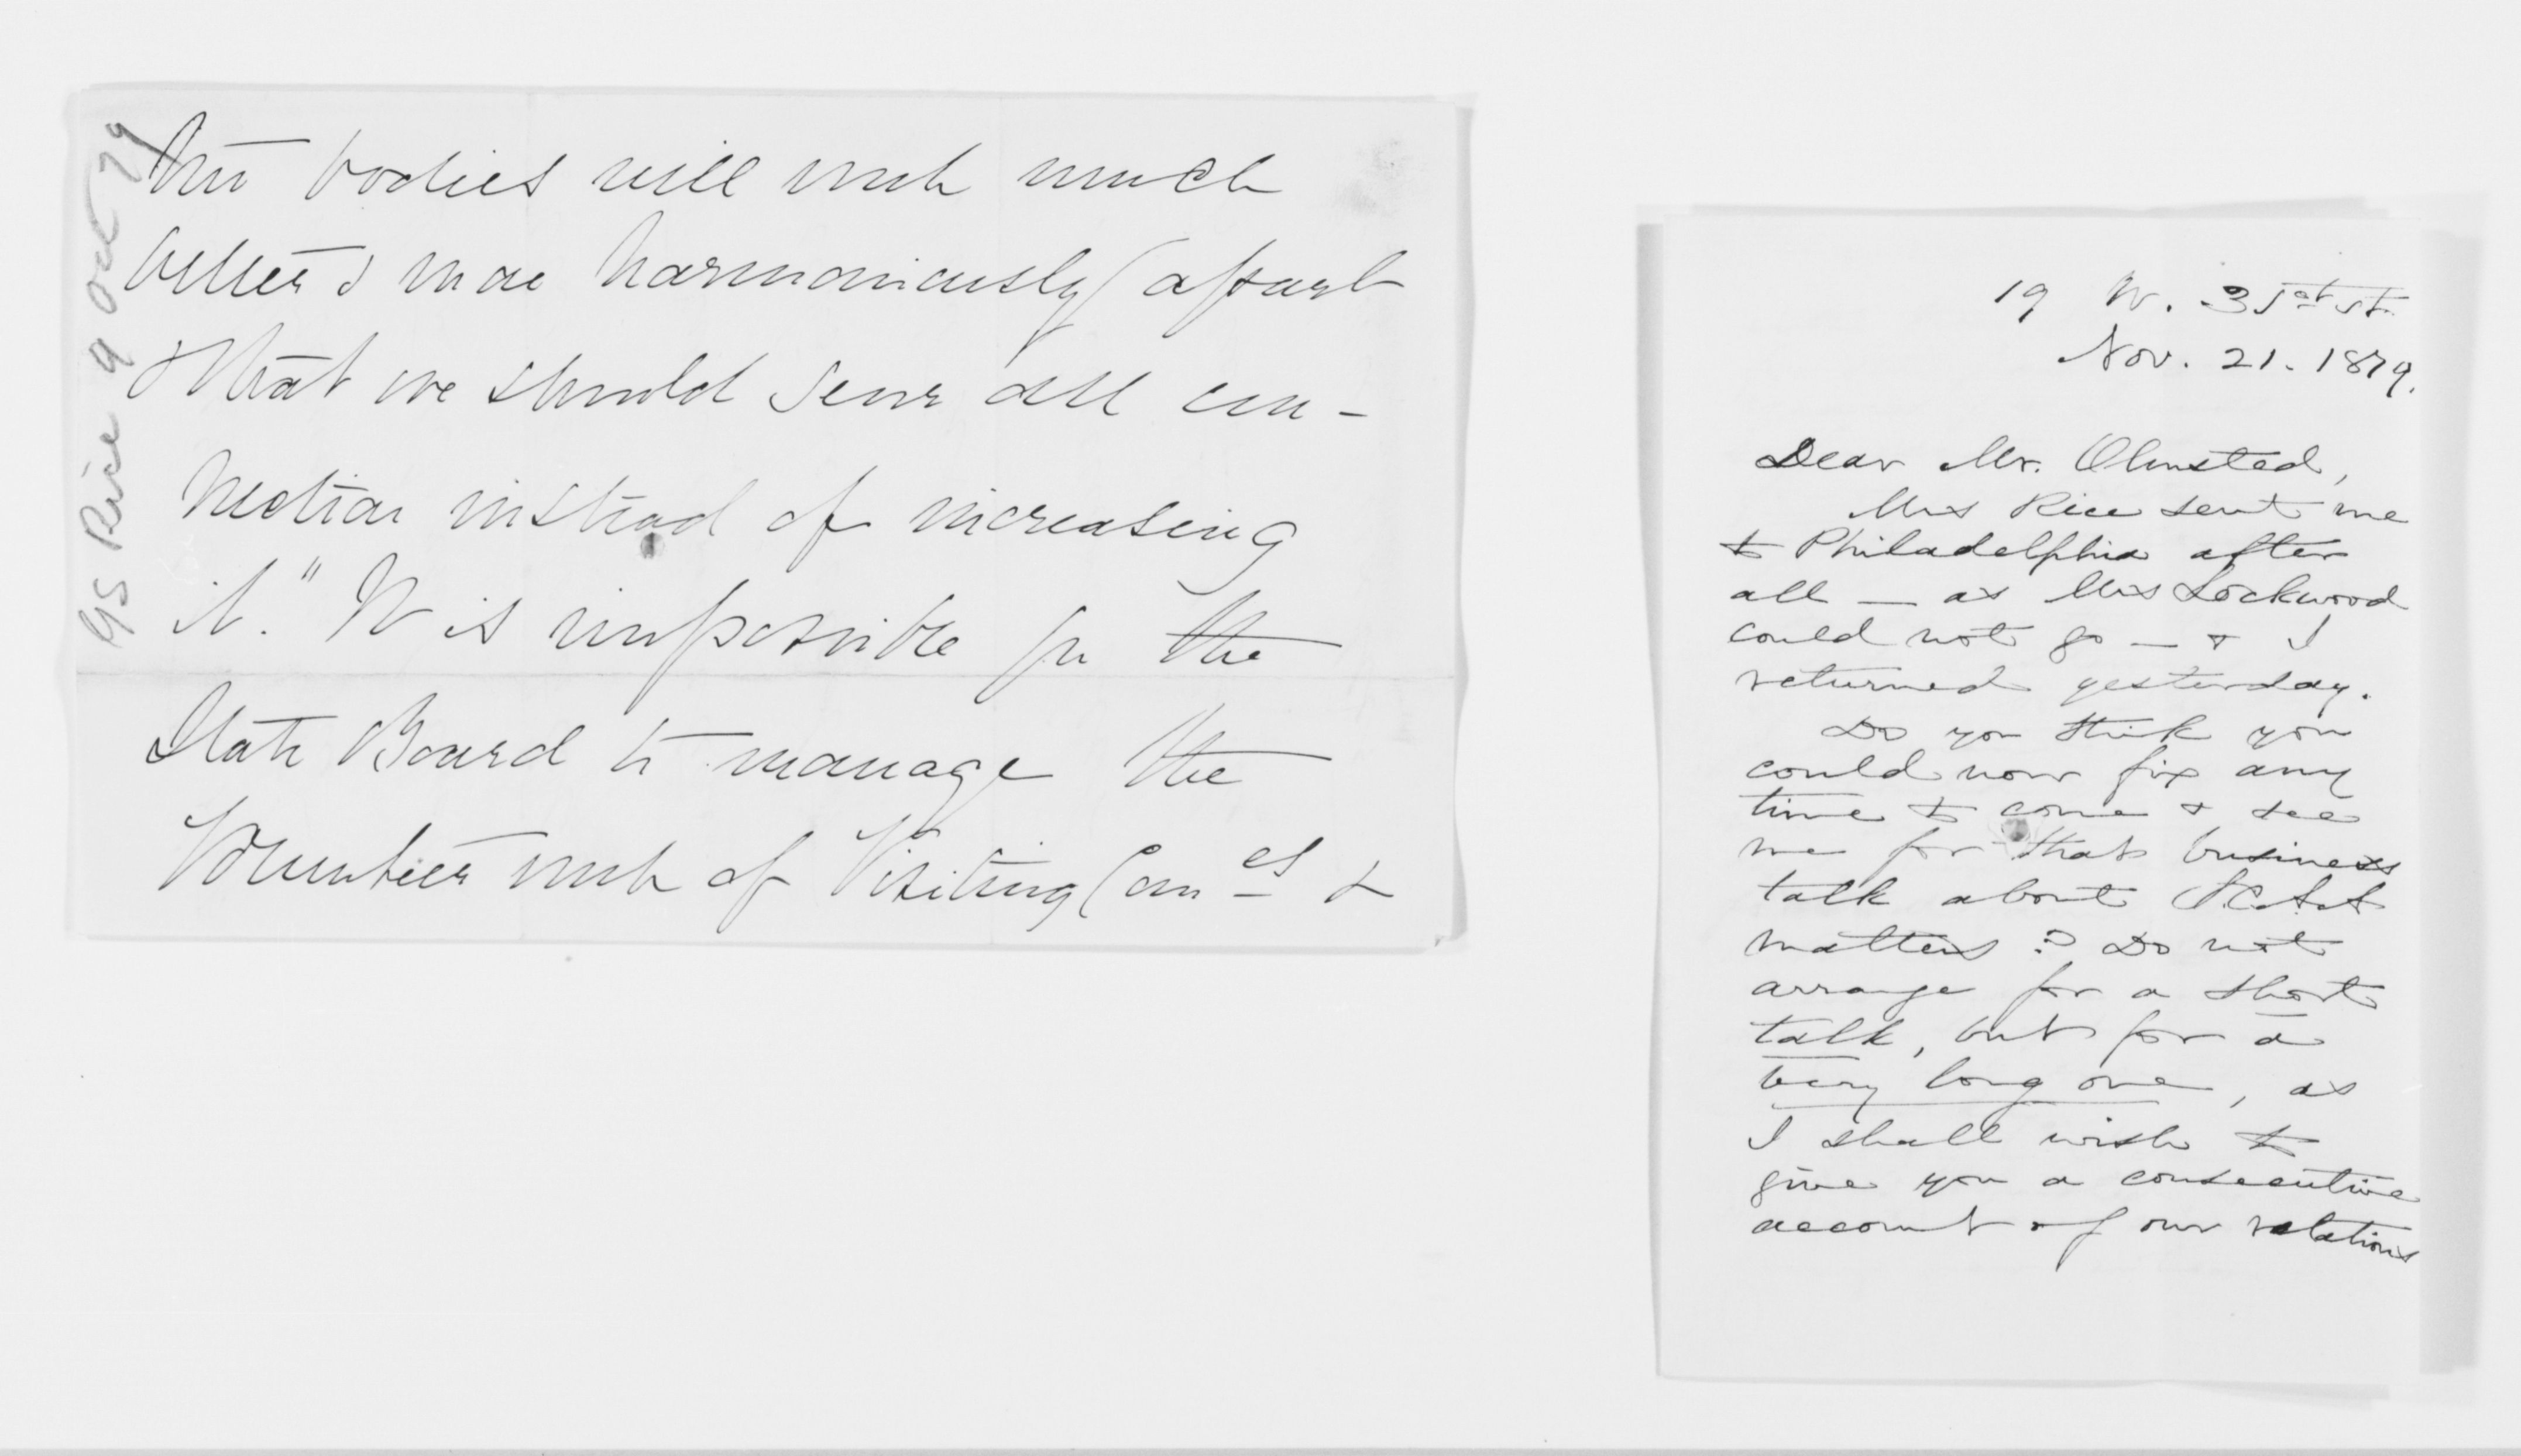 GS Rice 9 Oct 79
two bodies will work much
better & more harmoniously apart
& that we should sever all con-
nection instead of increasing
it." It is impossible for the
State Board to manage the
Volunteer work of Visiting Com es &
19 W. 31st St.
Nov. 21. 1879.
Dear Mr. Olmsted,
Mrs Rice sent me
to Philadelphia after
all — as Mrs Lockwood
could not go — & I
returned yesterday.
Do you think you
could now fix any
time to come & see
me for that business
talk about S.C.A.A
matters? Do not
arrange for a short
talk, but for a
very long one, as
I shall wish to
give you a consecutive
account of our relations